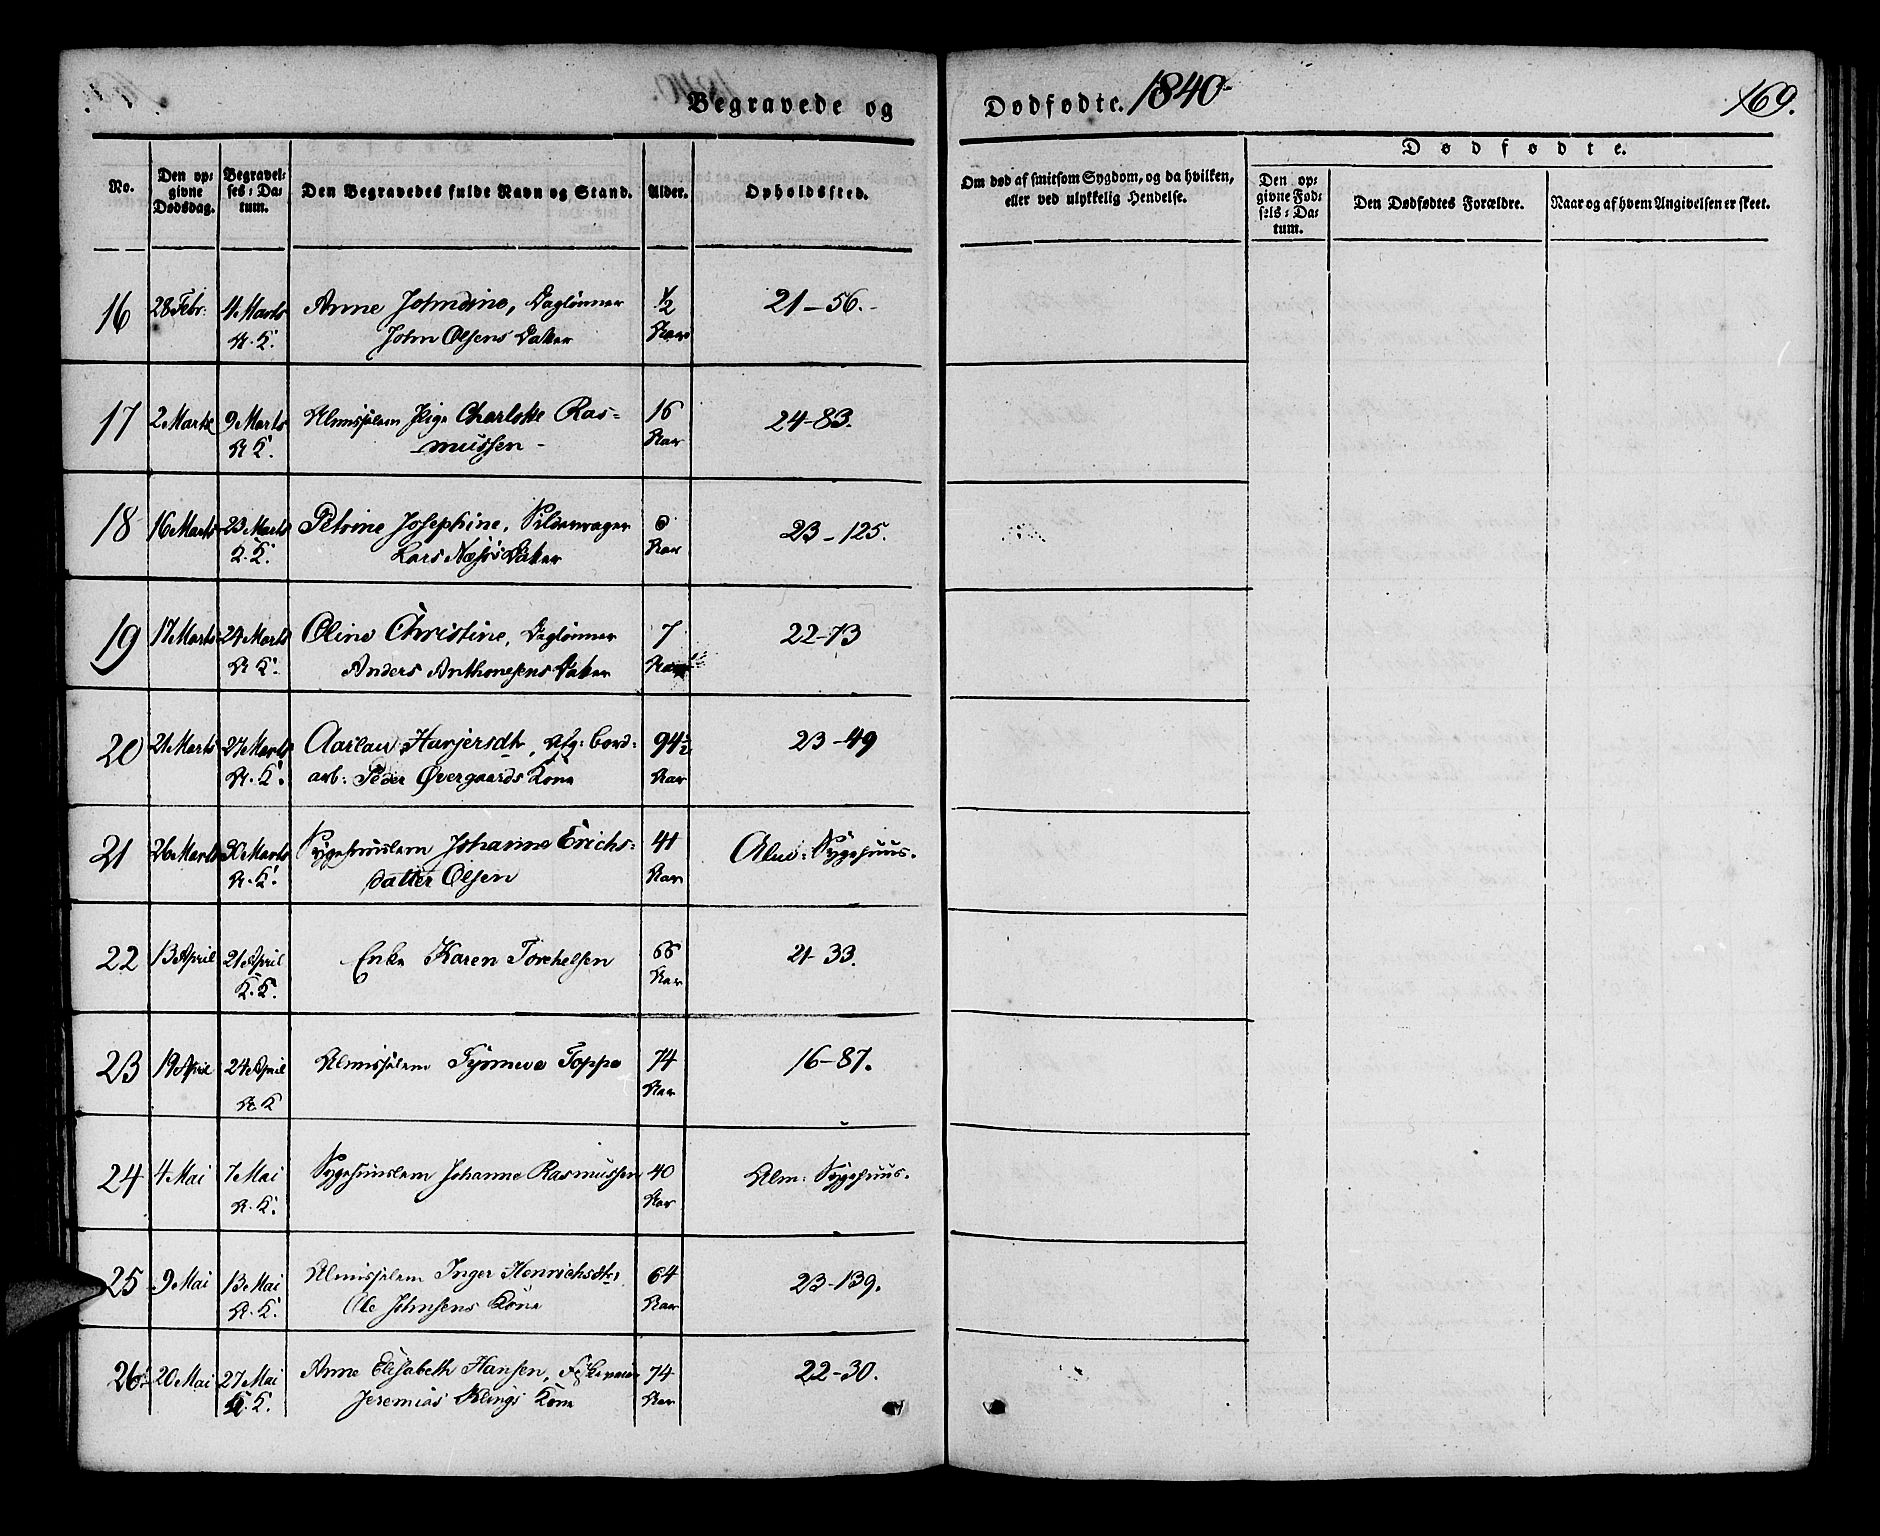 Begravede og Dødfødte. 1840 169.
No.
Den op-
givne
Dødsdag.
Begravel-
ses-Da-
tum.
Den Begravedes fulde Navn og Stand.
Alder.
Opholdssted.
Om død af smitsom Sygdom, og da hvilken,
eller ved ulykkelig Hendelse.
Dødfødte.
Den op-
givne Fød-
sels-Da-
tum.
Den Dødfødtes Forældre.
Naar og af hvem Angivelsen er skeet.
16 28 Febr: 4 Marts Anne Johndine, Daglønner 1/2 21-56.
K. John Olsens Datter Aar
17 2 Marts 9 Marts Almisselem Pige Charlotte Ras- 16 24-83.
K. mussen Aar
18 16 Marts 23 Marts Petrine Josephine, Sildevrager 23-125.
K. Lars Næss's Datter Aar
19 17 Marts 24 Marts Oline Christine, Daglønner 7 22-73
K. Anders Anthonesens Datter Aar
20 21 Marts 27 Marts Aarlau Harjersdt, Afg: bord- 94 1/2 23-49
K. arb: Peder Øvergaards Kone Aar
21 26 Marts 30 Marts Sygehuuslem Johanne Erichs- 41 Alm: Sygehuus.
K. datter Olsen Aar
22 13 April 21 April Enke Karen Torchelsen 66 21-33.
K. K. Aar
23 19 April 24 April Almisselem Synneva Toppe 74 16-87.
K. Aar
24 4 Mai 7 Mai Sygehuuslem Johanne Rasmussen 40 Alm: Sygehuus.
K. Aar
25 9 Mai 13 Mai Almisselem Inger Henrichsdtr 64 23-139.
K. Ole Johnsens Kone Aar
26 20 Mai 27 Mai Anne Elisabeth Hansen, 74 22-30.
K. K. Jeremias Klings Kone Aar